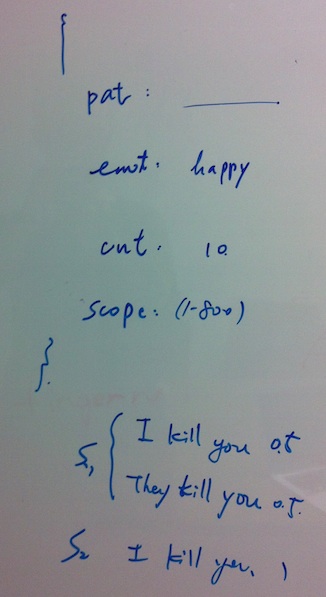 {
pat : ______.
emot. happy
cnt. 10.
scope: (1-800)
}.
S₁ { I kill you 0.5
They kill you 0.5.
S₂ I kill you. 1